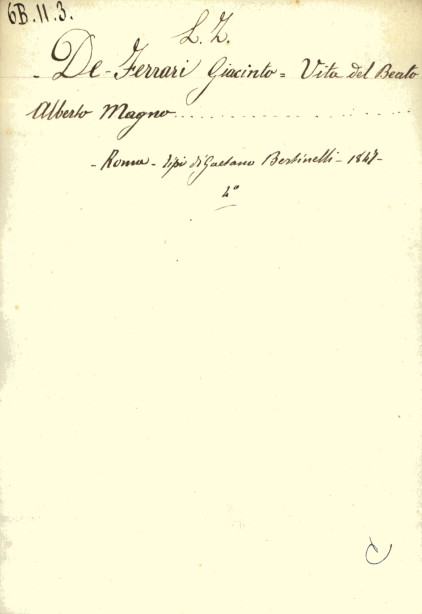 6B.11.3.
L. Z.
- De-Ferrari Giacinto = Vita del Beato
Alberto Magno..............................
- Roma - tipi di Gaetano Bertinelli - 1847 -
4°